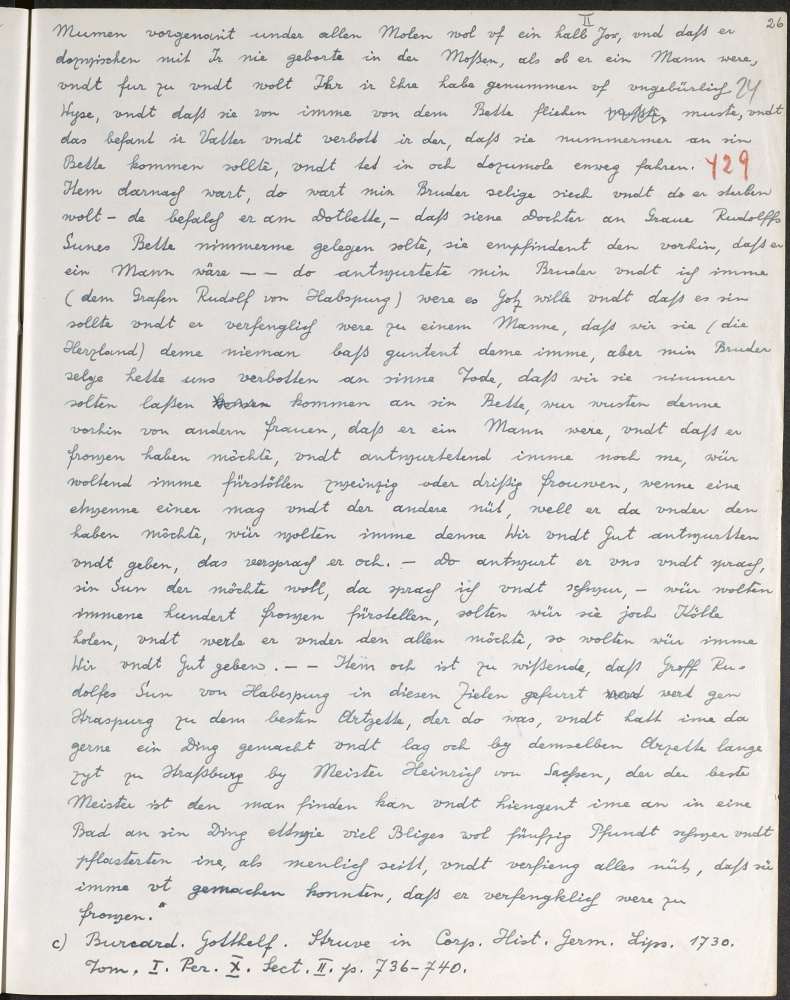 II
26
Mumen vorgenant under allen Molen wol vf ein halb Jor, vnd daß er
domzischen mit Ir nie geborte in der Moßen, als ob er ein Mann were,
vndt fur zu vndt wolt Ihr ir Ehre habe genummen vf vngebürlich 24
Wyse, vndt daß sie von imme von dem Bette fliehen muste, vndt
das befant ir Vatter vndt verbott ir der, daß sie nummermer an sin
Bette kommen sollte, vndt tet in och dozumole enweg fahren. 429
Item darnach wart, do wart min Bruder selige siech vndt do er sterben
wolt – do befalch er am Dotbette, – daß siene Dochter an Graue Rudolffs
Sunes Bette nimmerme gelegen solte, sie empfindent den vorhin, daß er
ein Mann wäre – – do antwurtete min Bruder vndt ich imme
(dem Grafen Rudolf von Habspurg) were es Gotz wille vndt daß es sin
sollte vndt er verfenglich were zu einem Manne, daß wir sie (die
Herzland) deme nieman baß guntent deme imme, aber min Bruder
selge hette uns verbotten an sinne Tode, daß wir sie nimmer
solten laßen kommen an sin Bette, wur wusten denne
vorhin von andern frauen, daß er ein Mann were, vndt daß er
frowen haben möchte, vndt antwurtetend imme noch me, wür
woltend imme fürstöllen zweinzig oder drißig frouwen, wenne eine
etwenne einer mag vndt der andere nüt, well er da vnder den
haben möchte, wür wolten imme denne Wir vndt Gut antwurtten
vndt geben, das versprach er och. – Do antwurt er vns vndt sprach,
sin Sun der möchte woll, da sprach ich vndt schwur, – wür wolten
immene hundert frowen fürstellen, solten wür sie joch Kölle
holen, vndt werle er vnder den allen möchte, so wolten wür imme
Wir vndt Gut geben. – – Item och ist zu wißende, daß Groff Ru-
dolfes Sun von Habespurg in diesen Zielen gefurrt wert gen
Straspurg zu dem besten Artzette, der do was, vndt hatt ime da
gerne ein Ding gemacht vndt lag och by demselben Arzette lange
zyt zu Straßburg by Meister Heinrich von Sachsen, der der beste
Meister ist den man finden kan vndt hiengent ime an in eine
Bad an sin Ding ettwie viel Bliges wol fünfzig Pfundt schwer vndt
pflasterten ine, als menlich seitt, vndt verfieng alles nüt, daß sü
imme vt gemachen konnten, daß er verfengklich were zu
frowen."
c) Burcard. Gotthelf. Struve in Corp. Hist. Germ. Lips. 1730.
Tom. I. Per. X. Sect. II. p. 736–740.